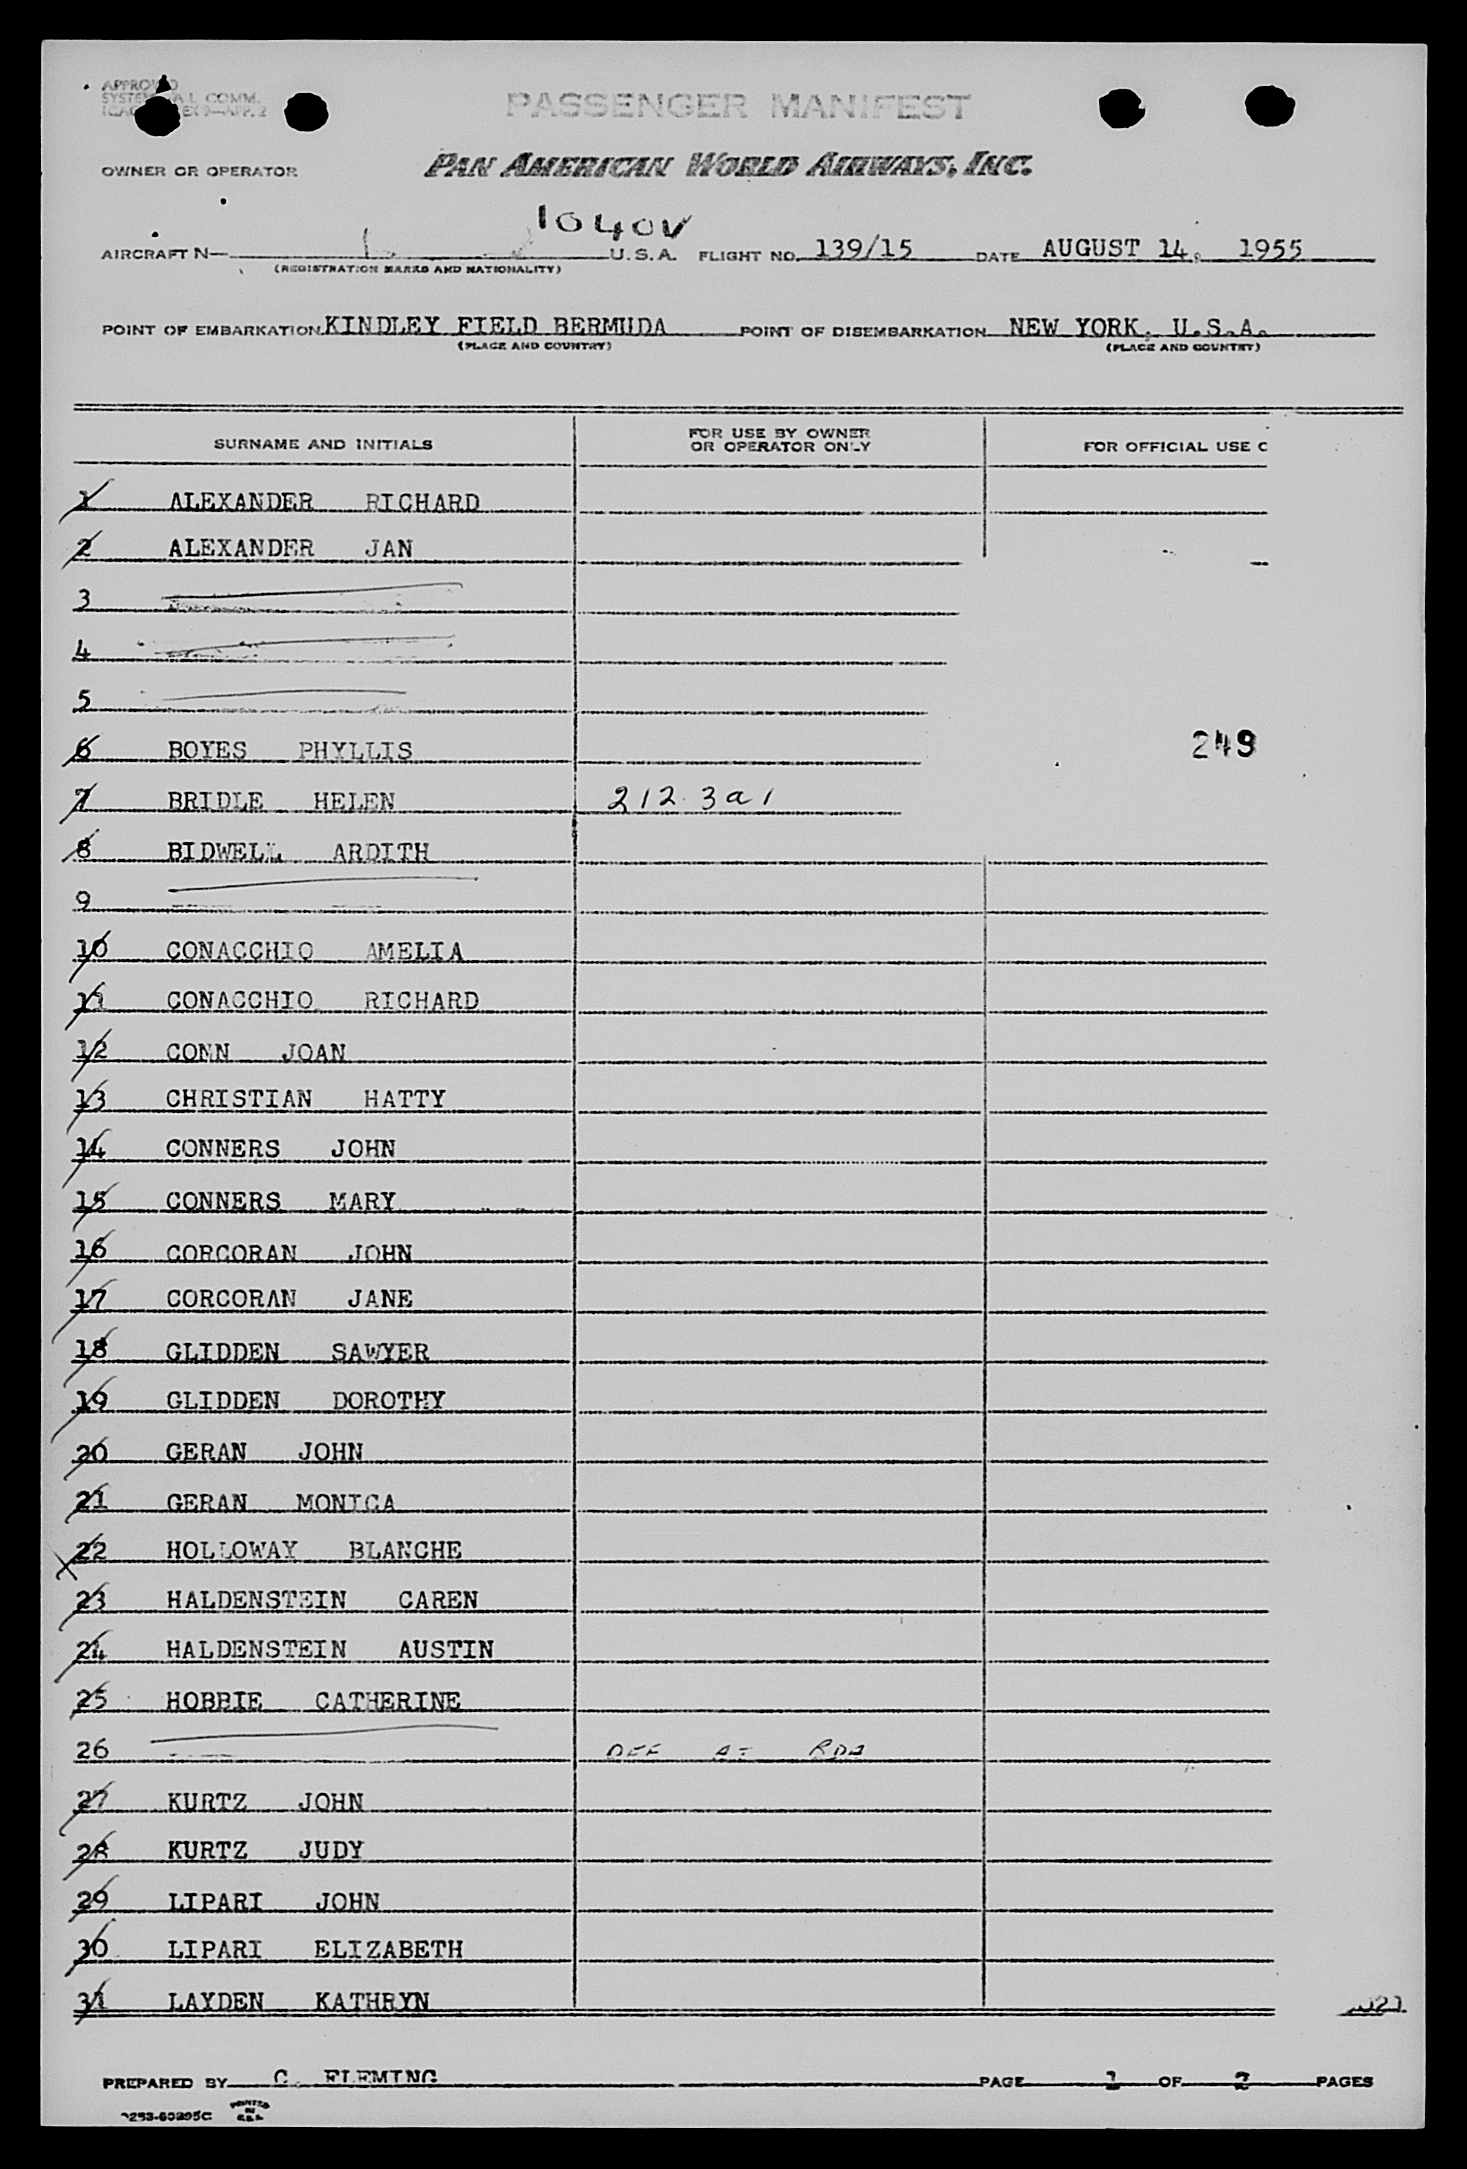 APPROVED
PASSENGER MANIFEST
PAN AMERICAN WORLD AIRWAYS, INC.
OWNER OR OPERATOR
1040V
AIRCRAFT N— U.S.A. FLIGHT NO. 139/15 DATE AUGUST 14, 1955
(REGISTRATION MARKS AND NATIONALITY)
POINT OF EMBARKATION KINDLEY FIELD BERMUDA POINT OF DISEMBARKATION NEW YORK, U.S.A.
(PLACE AND COUNTRY) (PLACE AND COUNTRY)
SURNAME AND INITIALS FOR USE BY OWNER OR OPERATOR ONLY FOR OFFICIAL USE O
1 ALEXANDER RICHARD
2 ALEXANDER JAN
3
4
5
6 BOYES PHYLLIS 249
7 BRIDLE HELEN 212.3a1
8 BIDWELL ARDITH
9
10 CONACCHIO AMELIA
11 CONACCHIO RICHARD
12 CONN JOAN
13 CHRISTIAN HATTY
14 CONNERS JOHN
15 CONNERS MARY
16 CORCORAN JOHN
17 CORCORAN JANE
18 GLIDDEN SAWYER
19 GLIDDEN DOROTHY
20 GERAN JOHN
21 GERAN MONICA
22 HOLLOWAY BLANCHE
23 HALDENSTEIN CAREN
24 HALDENSTEIN AUSTIN
25 HOBBIE CATHERINE
26 OFF AT BDA
27 KURTZ JOHN
28 KURTZ JUDY
29 LIPARI JOHN
30 LIPARI ELIZABETH
31 LAYDEN KATHRYN
PREPARED BY C. FLEMING PAGE 1 OF 2 PAGES
PRINTED IN U.S.A.